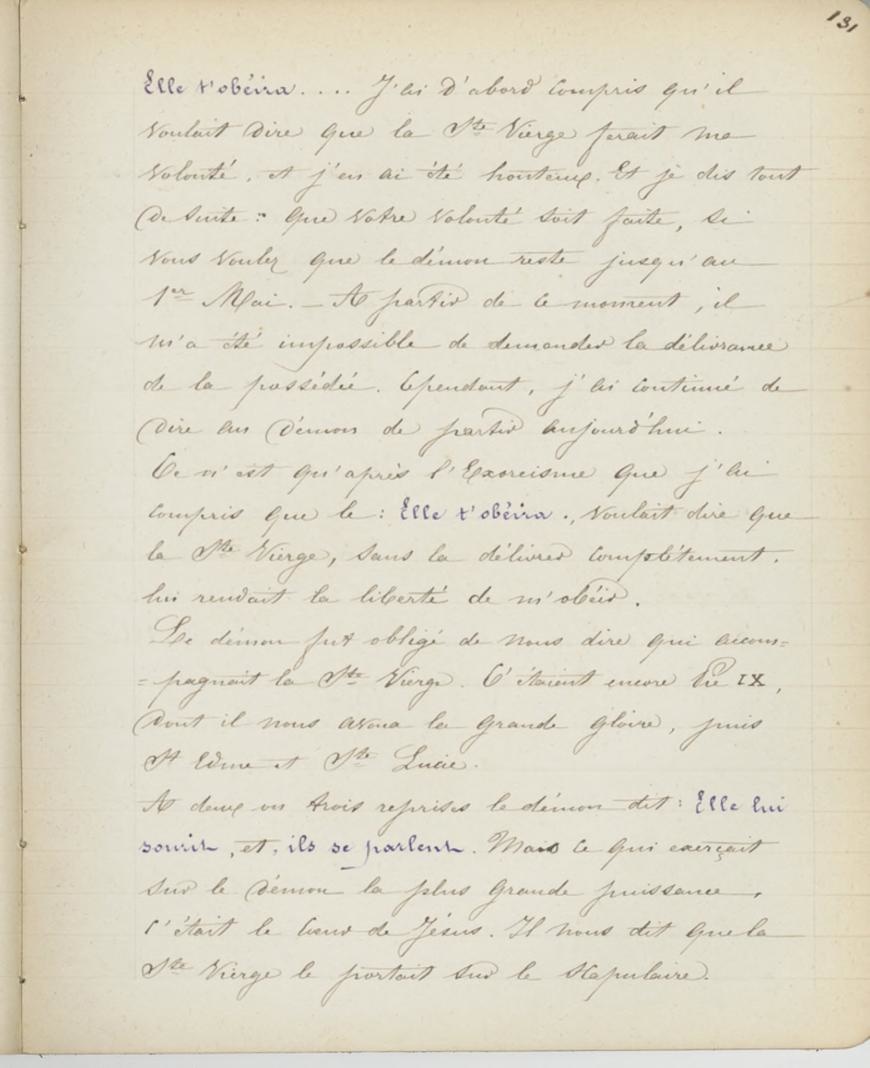 131
Elle t'obéira.... J'ai d'abord compris qu'il
voulait dire que la Ste Vierge ferait ma
volonté, et j'en ai été honteux. Et je dis tout
de suite : que votre volonté soit faite, si
vous voulez que le démon reste jusqu'au
1er Mai. _ A partir de ce moment, il
m'a été impossible de demander la délivrance
de la possédée. Cependant, j'ai continué de
dire au démon de partir aujourd'hui.
Ce n'est qu'après l'Exorcisme que j'ai
compris que le : Elle t'obéira., voulait dire que
la Ste Vierge, sans la délivrer complétement,
lui rendait la liberté de m'obéir.
Le démon fut obligé de nous dire qui accom=
=pagnait la Ste Vierge. C'étaient encore Pie IX,
dont il nous avoua la grande gloire, puis
St Edme et Ste Lucie.
A deux ou trois reprises le démon dit : Elle lui
sourit, et, ils se parlent. Mais ce qui exerçait
sur le démon la plus grande puissance,
c'était le Cœur de Jésus. Il nous dit que la
Ste Vierge le portait sur le Scapulaire.